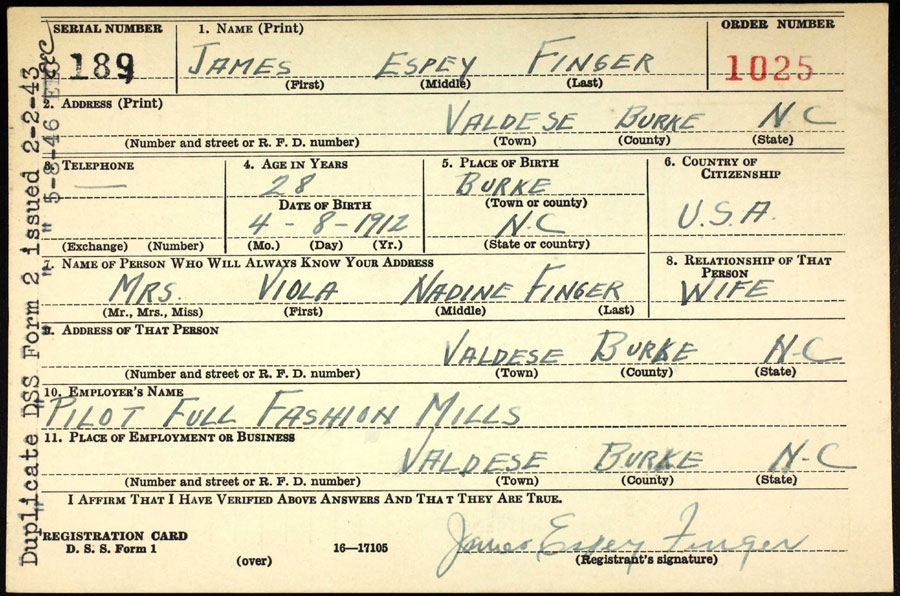 SERIAL NUMBER 1. NAME (Print) ORDER NUMBER
189 JAMES ESPEY FINGER 1025
(First) (Middle) (Last)
2. ADDRESS (Print)
VALDESE BURKE N C
(Number and street or R. F. D. number) (Town) (County) (State)
3. TELEPHONE 4. AGE IN YEARS 5. PLACE OF BIRTH 6. COUNTRY OF CITIZENSHIP
— 28 BURKE U.S.A.
DATE OF BIRTH (Town or county)
4-8-1912 N.C
(Exchange) (Number) (Mo.) (Day) (Yr.) (State or country)
7. NAME OF PERSON WHO WILL ALWAYS KNOW YOUR ADDRESS 8. RELATIONSHIP OF THAT PERSON
MRS. VIOLA NADINE FINGER WIFE
(Mr., Mrs., Miss) (First) (Middle) (Last)
9. ADDRESS OF THAT PERSON
VALDESE BURKE N-C
(Number and street or R. F. D. number) (Town) (County) (State)
10. EMPLOYER'S NAME
PILOT FULL FASHION MILLS
11. PLACE OF EMPLOYMENT OR BUSINESS
VALDESE BURKE N-C
(Number and street or R. F. D. number) (Town) (County) (State)
I AFFIRM THAT I HAVE VERIFIED ABOVE ANSWERS AND THAT THEY ARE TRUE.
REGISTRATION CARD
D. S. S. Form 1 (over) 16—17105 James Espey Finger
(Registrant's signature)
Duplicate DSS Form 2 issued 2-2-43
" " " " 5-8-46